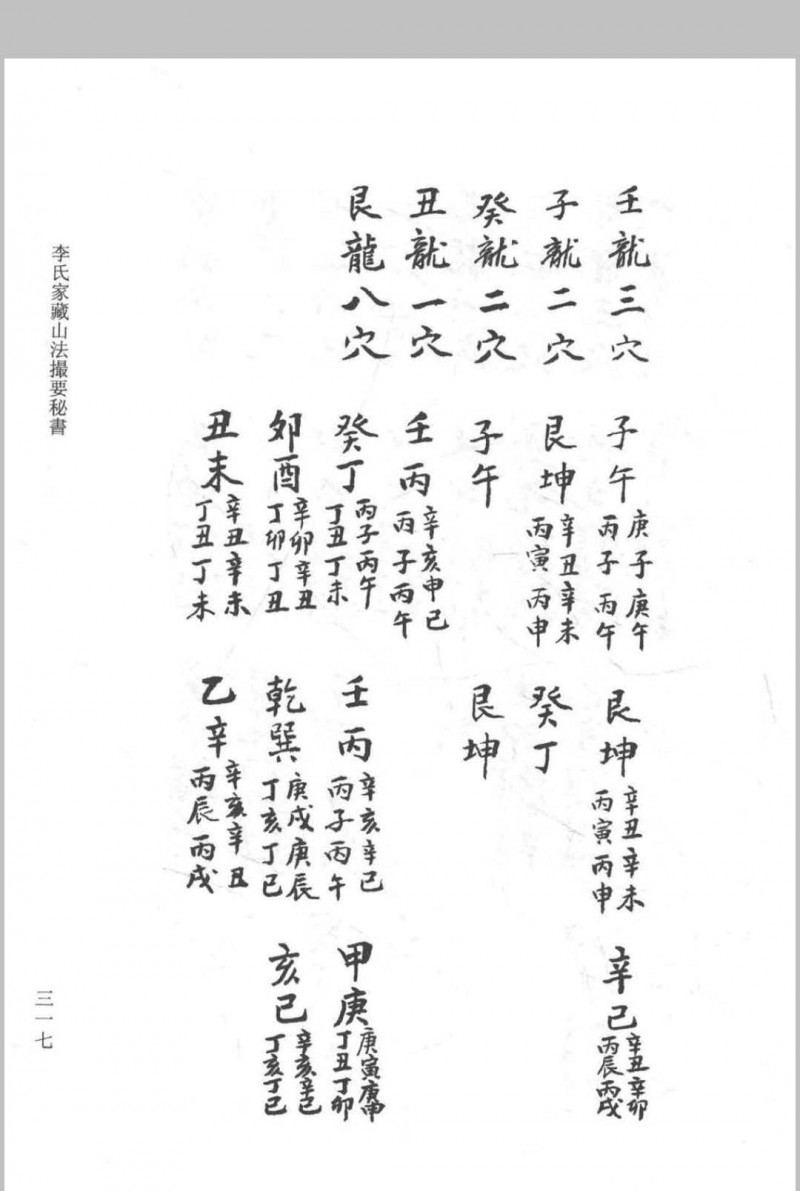 壬龍三穴 子午 庚子庚午 丙子丙午 艮坤 辛丑辛未 丙寅丙申 辛巳 辛丑辛卯 丙辰丙戌
子龍二穴 艮坤 辛丑辛未 丙寅丙申 癸丁
癸龍二穴 子午 艮坤
丑龍一穴 壬丙 辛亥申巳 丙子丙午
艮龍八穴 癸丁 丙子丙午 丁丑丁未 壬丙 辛亥辛巳 丙子丙午 甲庚 庚寅庚申 丁丑丁卯
卯酉 辛卯辛丑 丁卯丁丑 乾巽 庚戌庚辰 丁亥丁巳 亥巳 辛亥辛巳 丁亥丁巳
丑未 辛丑辛未 丁丑丁未 乙辛 辛亥辛丑 丙辰丙戌
李氏家藏山法撮要秘書
三一七